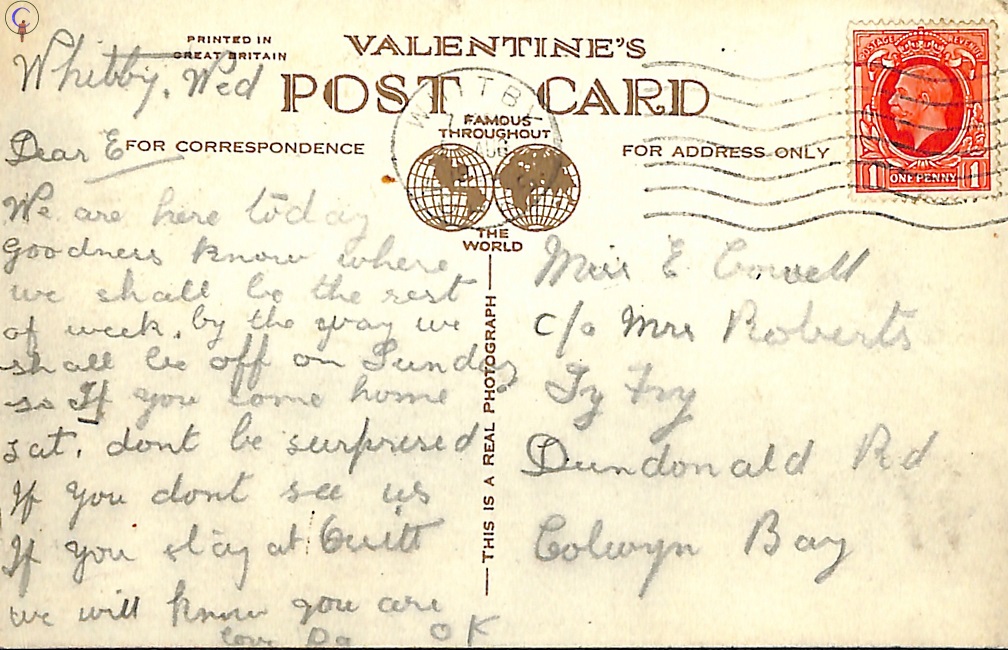 PRINTED IN
GREAT BRITAIN
VALENTINE'S
POST CARD
FAMOUS
THROUGHOUT
THE
WORLD
FOR CORRESPONDENCE
FOR ADDRESS ONLY
THIS IS A REAL PHOTOGRAPH
POSTAGE REVENUE
1 ONE PENNY 1
AUG
Whitby, Wed
Dear E
We are here today
Goodness know where
we shall be the rest
of week. by the way we
shall be off on Sunday
so If you come home
sat. dont be surprised
If you dont see us
If you stay at
we will know you are
OK
love Da
Miss E Cowell
c/o Mrs Roberts
Ty Fry
Dundonald Rd
Colwyn Bay